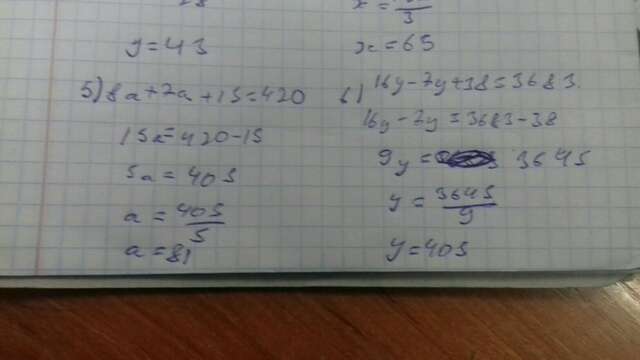 y=43
x=65
5) 8a+7a+15=420
15a=420-15
5a=405
a=405/5
a=81
6) 16y-7y+38=3683.
16y-7y=3683-38
9y= 3645
y=3645/9
y=405